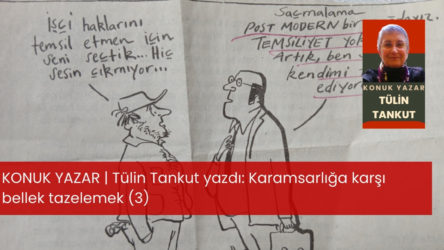 işçi haklarını
temsil etmen için
seni seçtik... Hiç
sesin çıkmıyor...
Saçmalama
POST MODERN bir
TEMSİLİYET
Artık, ben
kendimi
ediyor
KONUK YAZAR
TÜLİN
TANKUT
KONUK YAZAR | Tülin Tankut yazdı: Karamsarlığa karşı
bellek tazelemek (3)